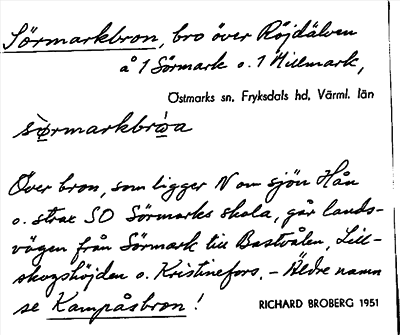 Sörmarkbron, bro över Röjdälven
å 1 Sörmark o. 1 Millmark,
Östmarks sn. Fryksdals hd, Värml. län
sørmarkbrøa
Över bron, som ligger N om sjön Hån
o. strax SO Sörmarks skola, går lands-
vägen från Sörmark till Bastvålen, Lill-
skogshöjden o. Kristinefors. – Äldre namn
se Kampåsbron!
RICHARD BROBERG 1951